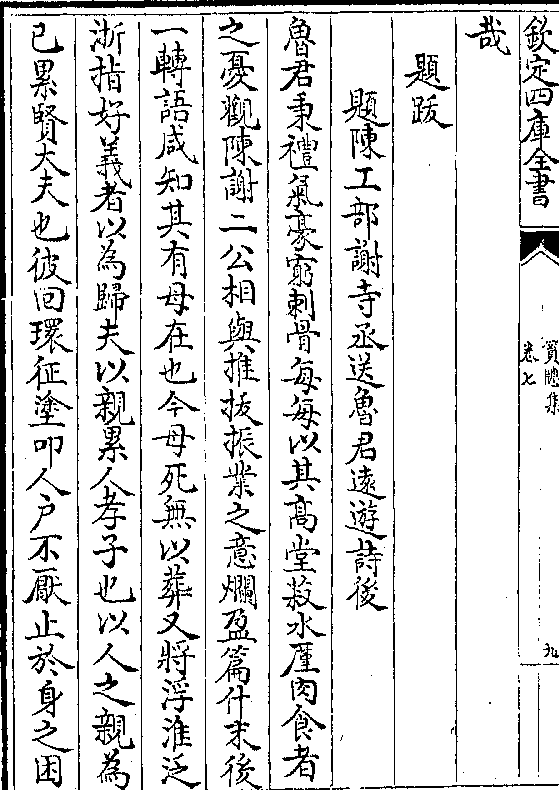 欽定四庫全書
卷七
九
哉
題跋
題陳工部謝寺丞送魯君遠遊詩後
魯君秉禮氣豪窮刺骨每每以其高堂菽水厪肉食者
之憂觀陳謝二公相與推拔振業之意爛盈篇什末後
一轉語咸知其有母在也今母死無以葬又將浮淮泛
浙指好義者以為歸夫以親累人孝子也以人之親為
已累賢大夫也彼回環征塗叩人户不厭止於身之困